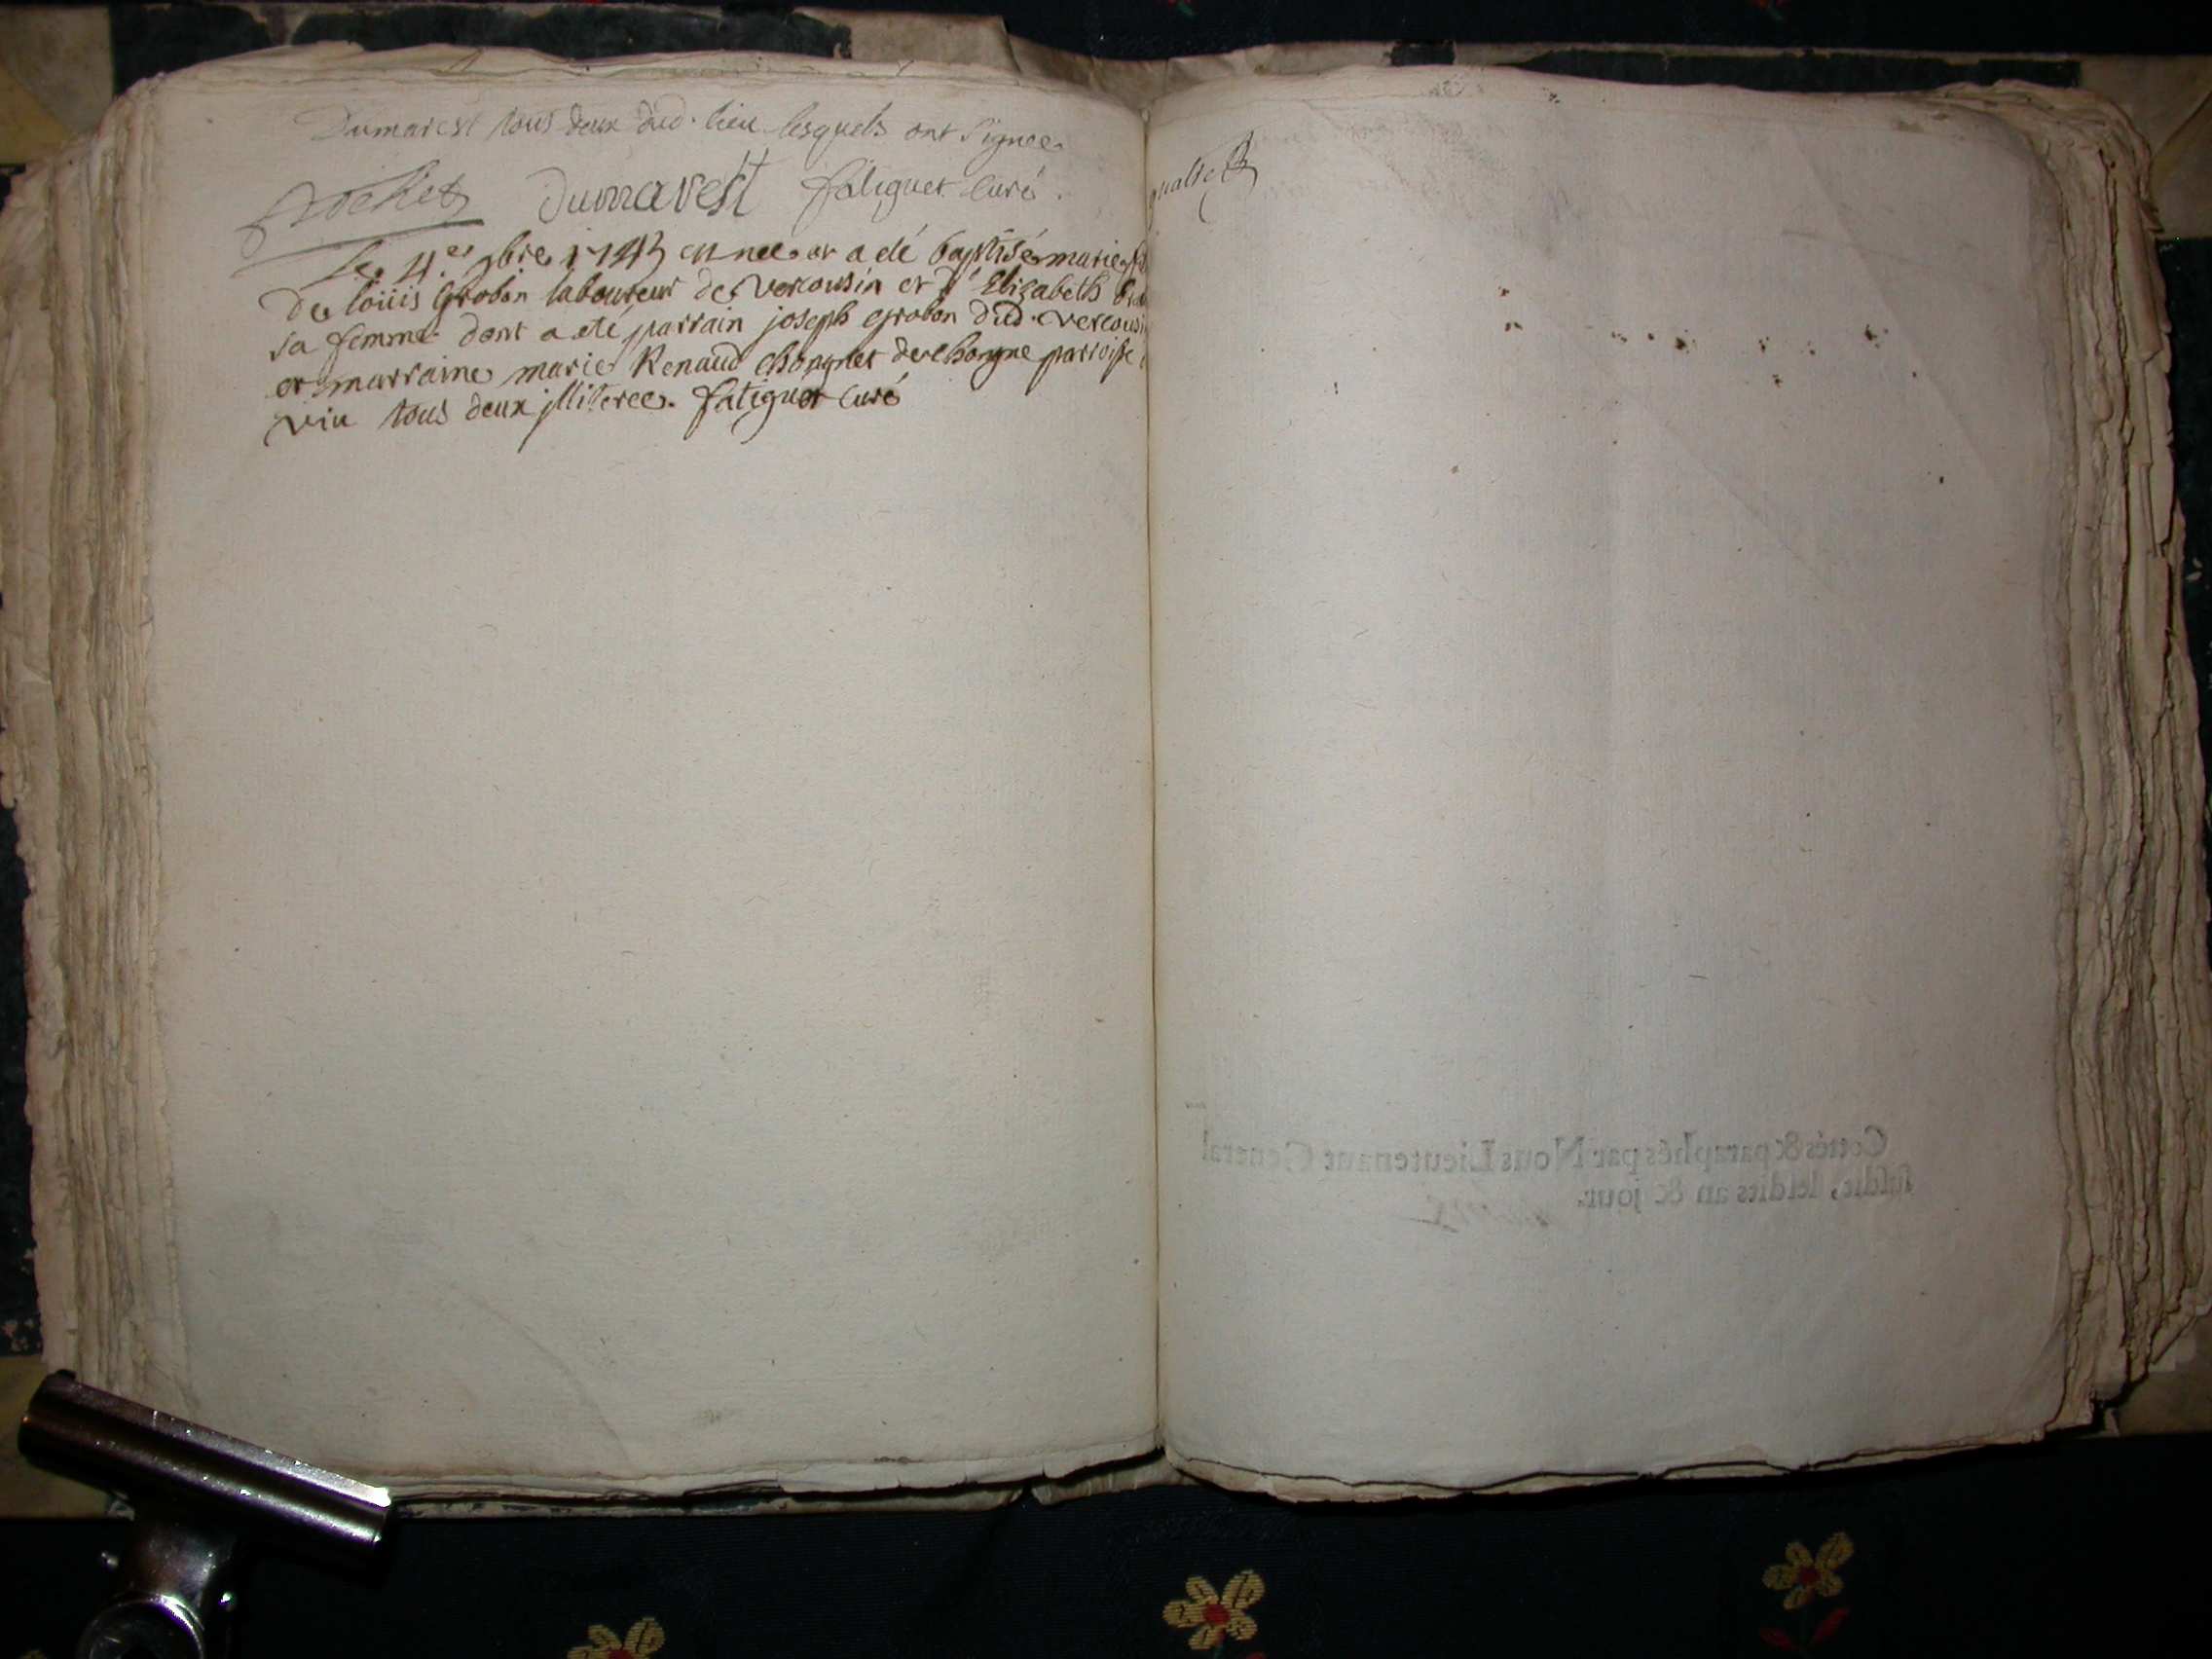 Dumarest tous deux dud. lieu lesquels ont Signee.
Dumarest fatiguet Curé.
Le 4.er bre 1743 est nee et a eté baptisée marie
De loüis Grobon laboureur de Vercousin et d' Elizabeth
sa femme dont a eté parrain joseph grobon dud. vercousin
et marraine marie Renaud chongnet de chongne parroisse
viu tous deux jlliteree. fatiguet Curé
Cottés & paraphés par Nous Lieutenant General
susdit, lesdits an & jour.